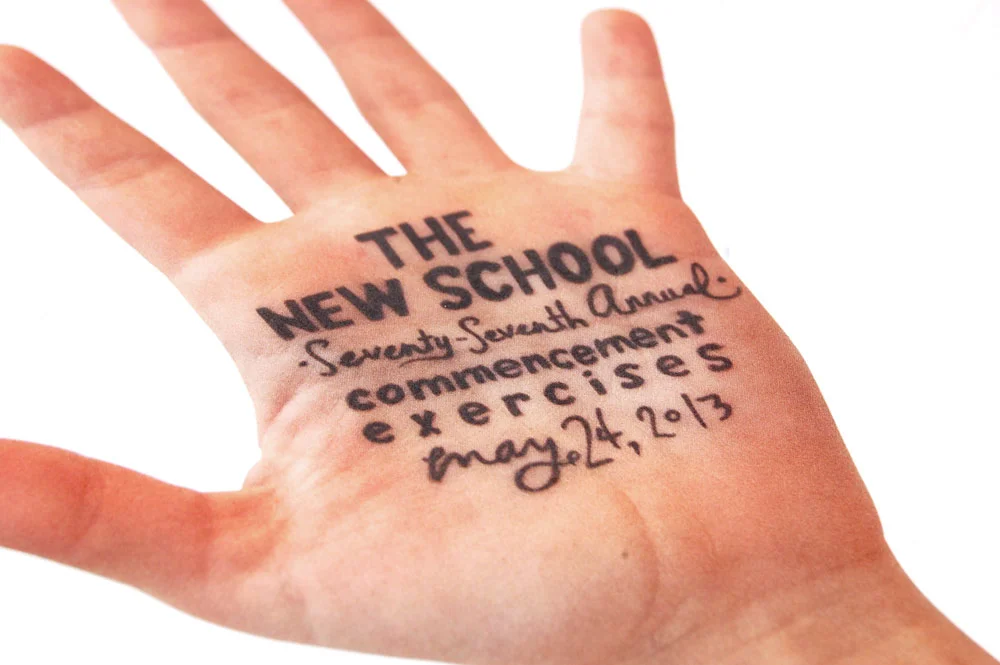 THE
NEW SCHOOL
·Seventy-Seventh Annual·
commencement
exercises
may, 24, 2013